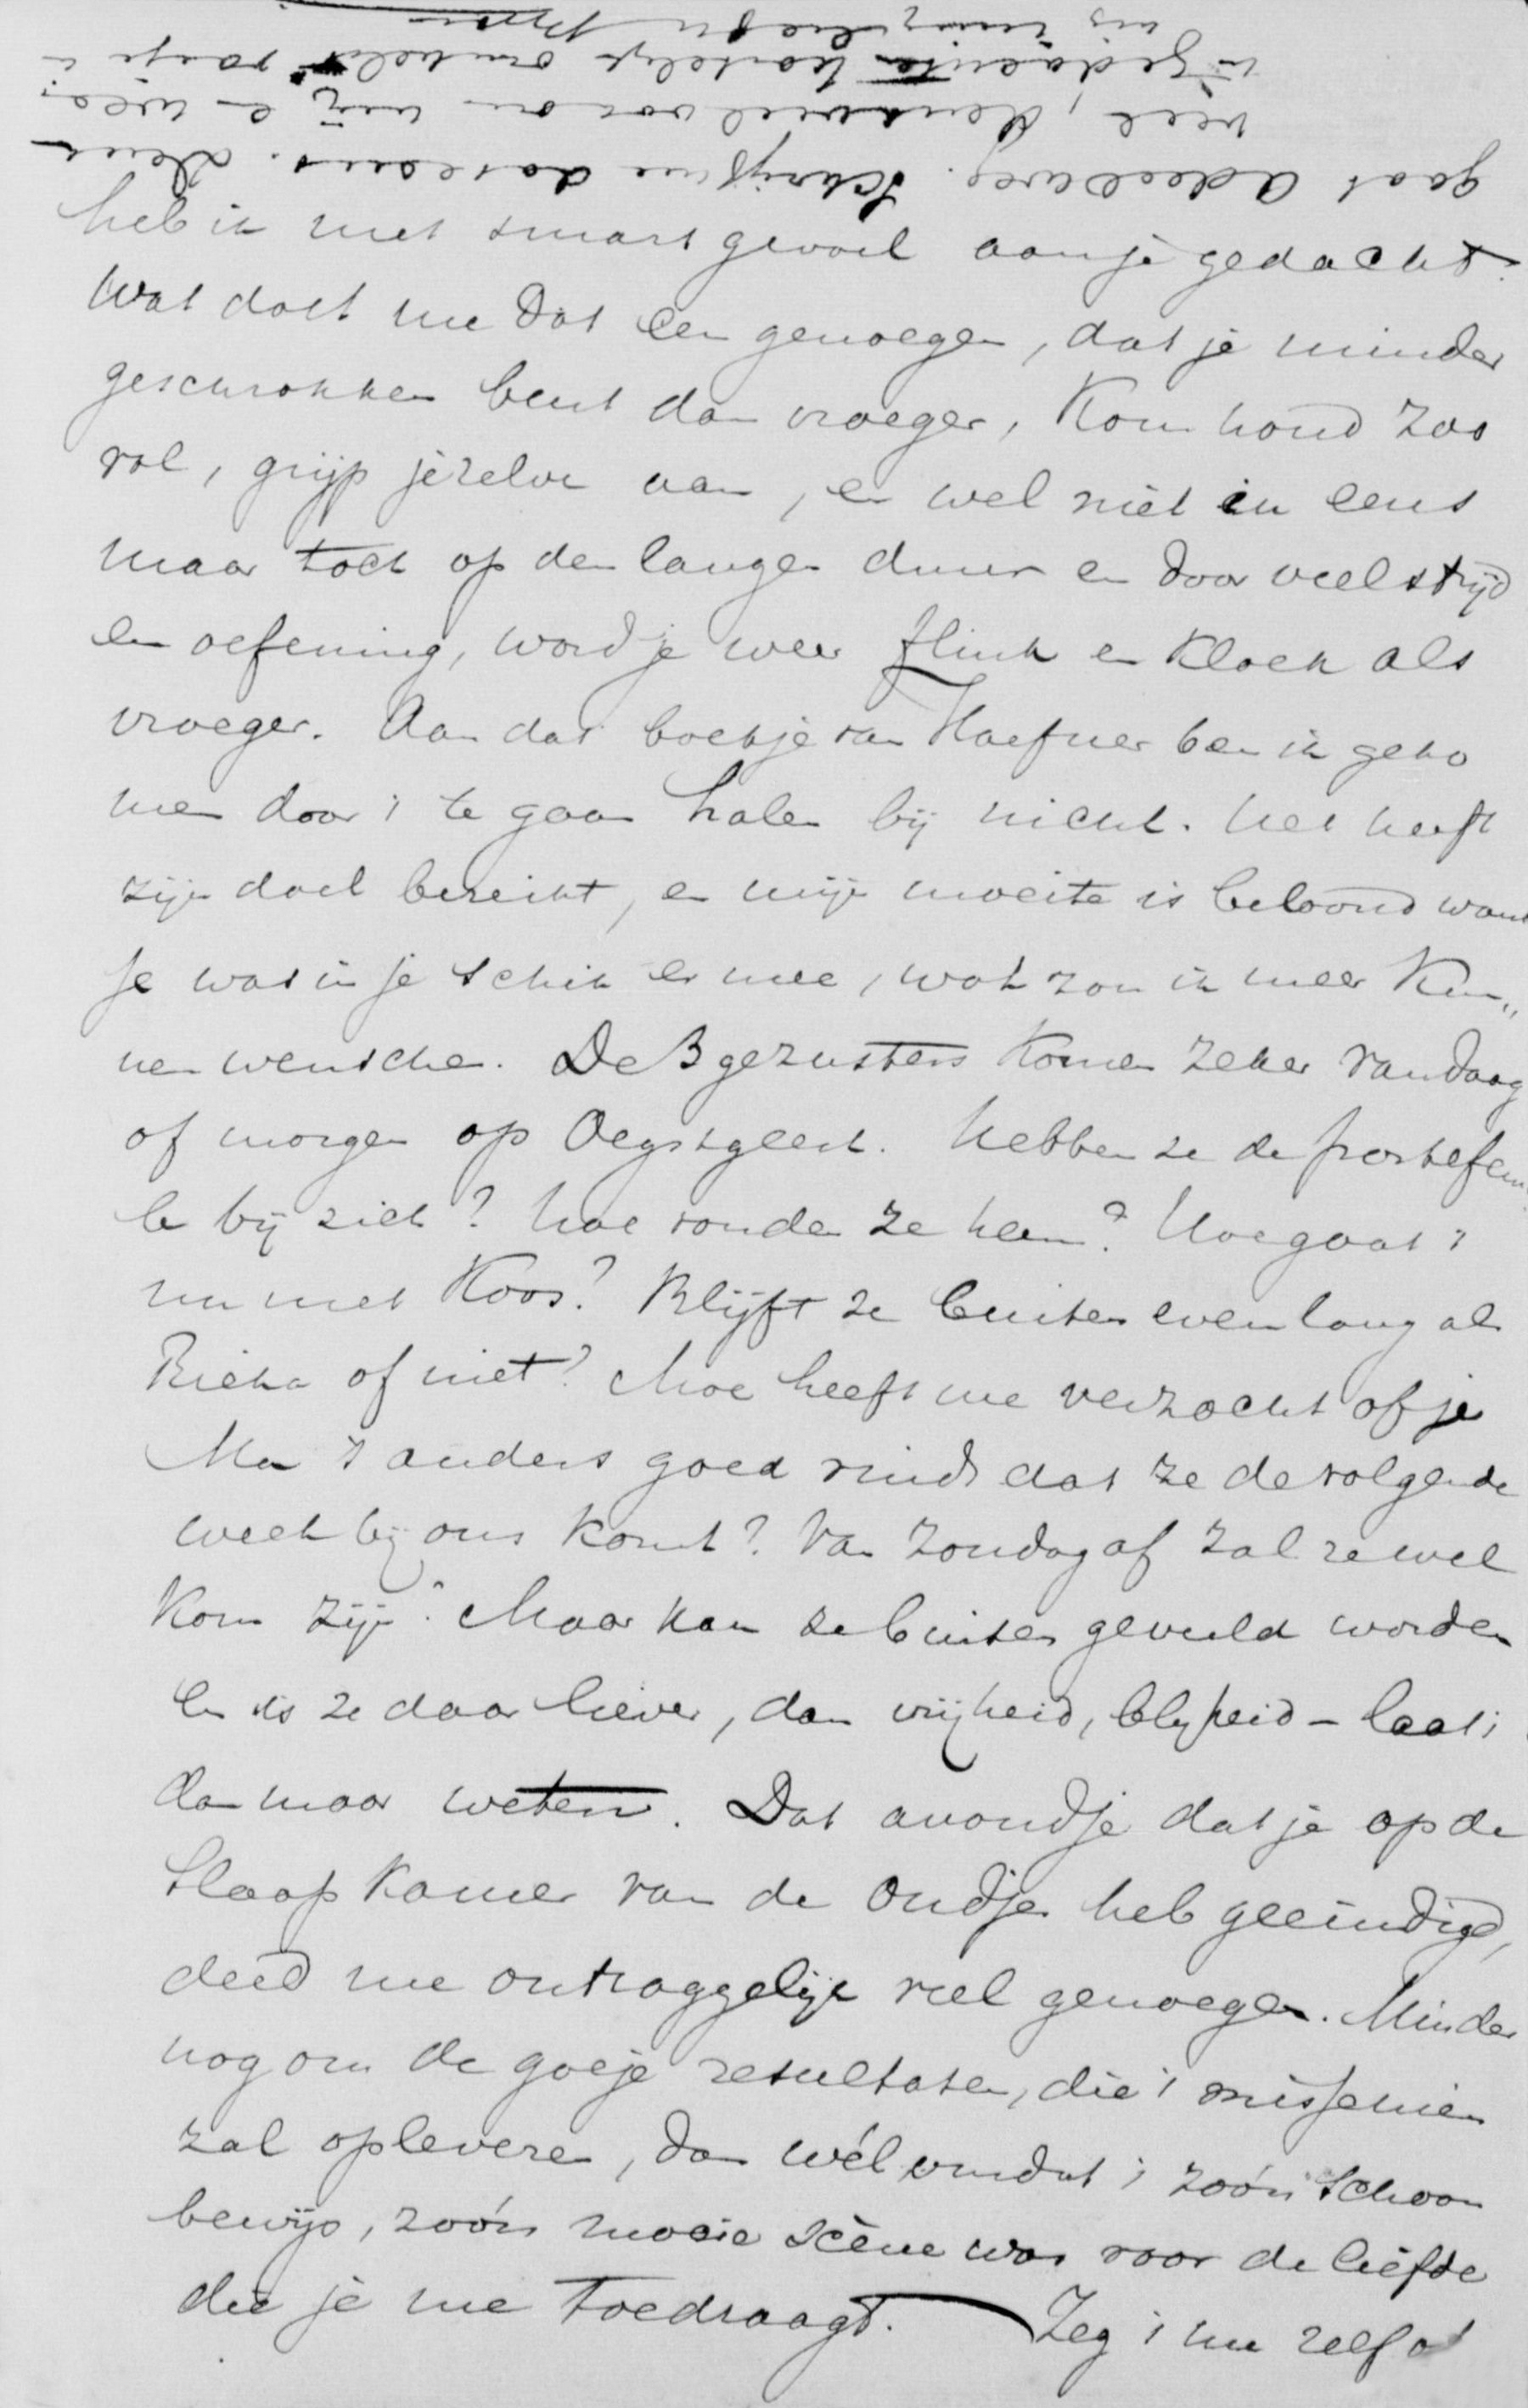 heb ik met smart gevoel aan je gedacht.
Wat doet me dat een genoegen, dat je minder
geschrokken bent dan vroeger, Kom houd zoo
vol, grijp jezelve aan, en wel niet in eens
maar toch op den langen duur en door veel strijd
en oefening, word je weer flink en kloek als
vroeger. Aan dat boekje van Haefner ben ik geko
men door 't te gaan halen bij nicht. Het heeft
zijn doel bereikt, en mijn moeite is beloond want
je was in je schik er mee, wat zou ik meer kun„
nen wenschen. De 3 gezusters komen zeker vandaag
of morgen op Oegstgeest. Hebben ze de portefeui
le bij zich? Hoe vonden ze hem? Hoe gaat 't
nu met Koos? Blijft ze buiten even lang als
Rieka of niet? Moe heeft me verzocht of je
Ma 't anders goed vindt dat ze de volgende
week bij ons komt? Van Zondag af zal ze wel
kom zijn. Maar kan ze buiten geveeld worden
en is ze daar liever, dan vrijheid, blijheid – laat 't
dan maar weten. Dat avondje dat je op de
slaapkamer van de oudjes heb geëindigd,
deed me ontzaggelijk veel genoegen. Minder
nog om de goeje resultaten, die 't misschien
zal opleveren, dan wél omdat 't zoó'n schoon
bewijs, zoó'n mooie scène was voor de liefde
die je me toedraagt. Zeg 't me zelf of
gaat Adeel weg. Schrijf me dat eens. Denk
veel, denk veel voor mij en wees
in gedachten hartelijk omhelsd